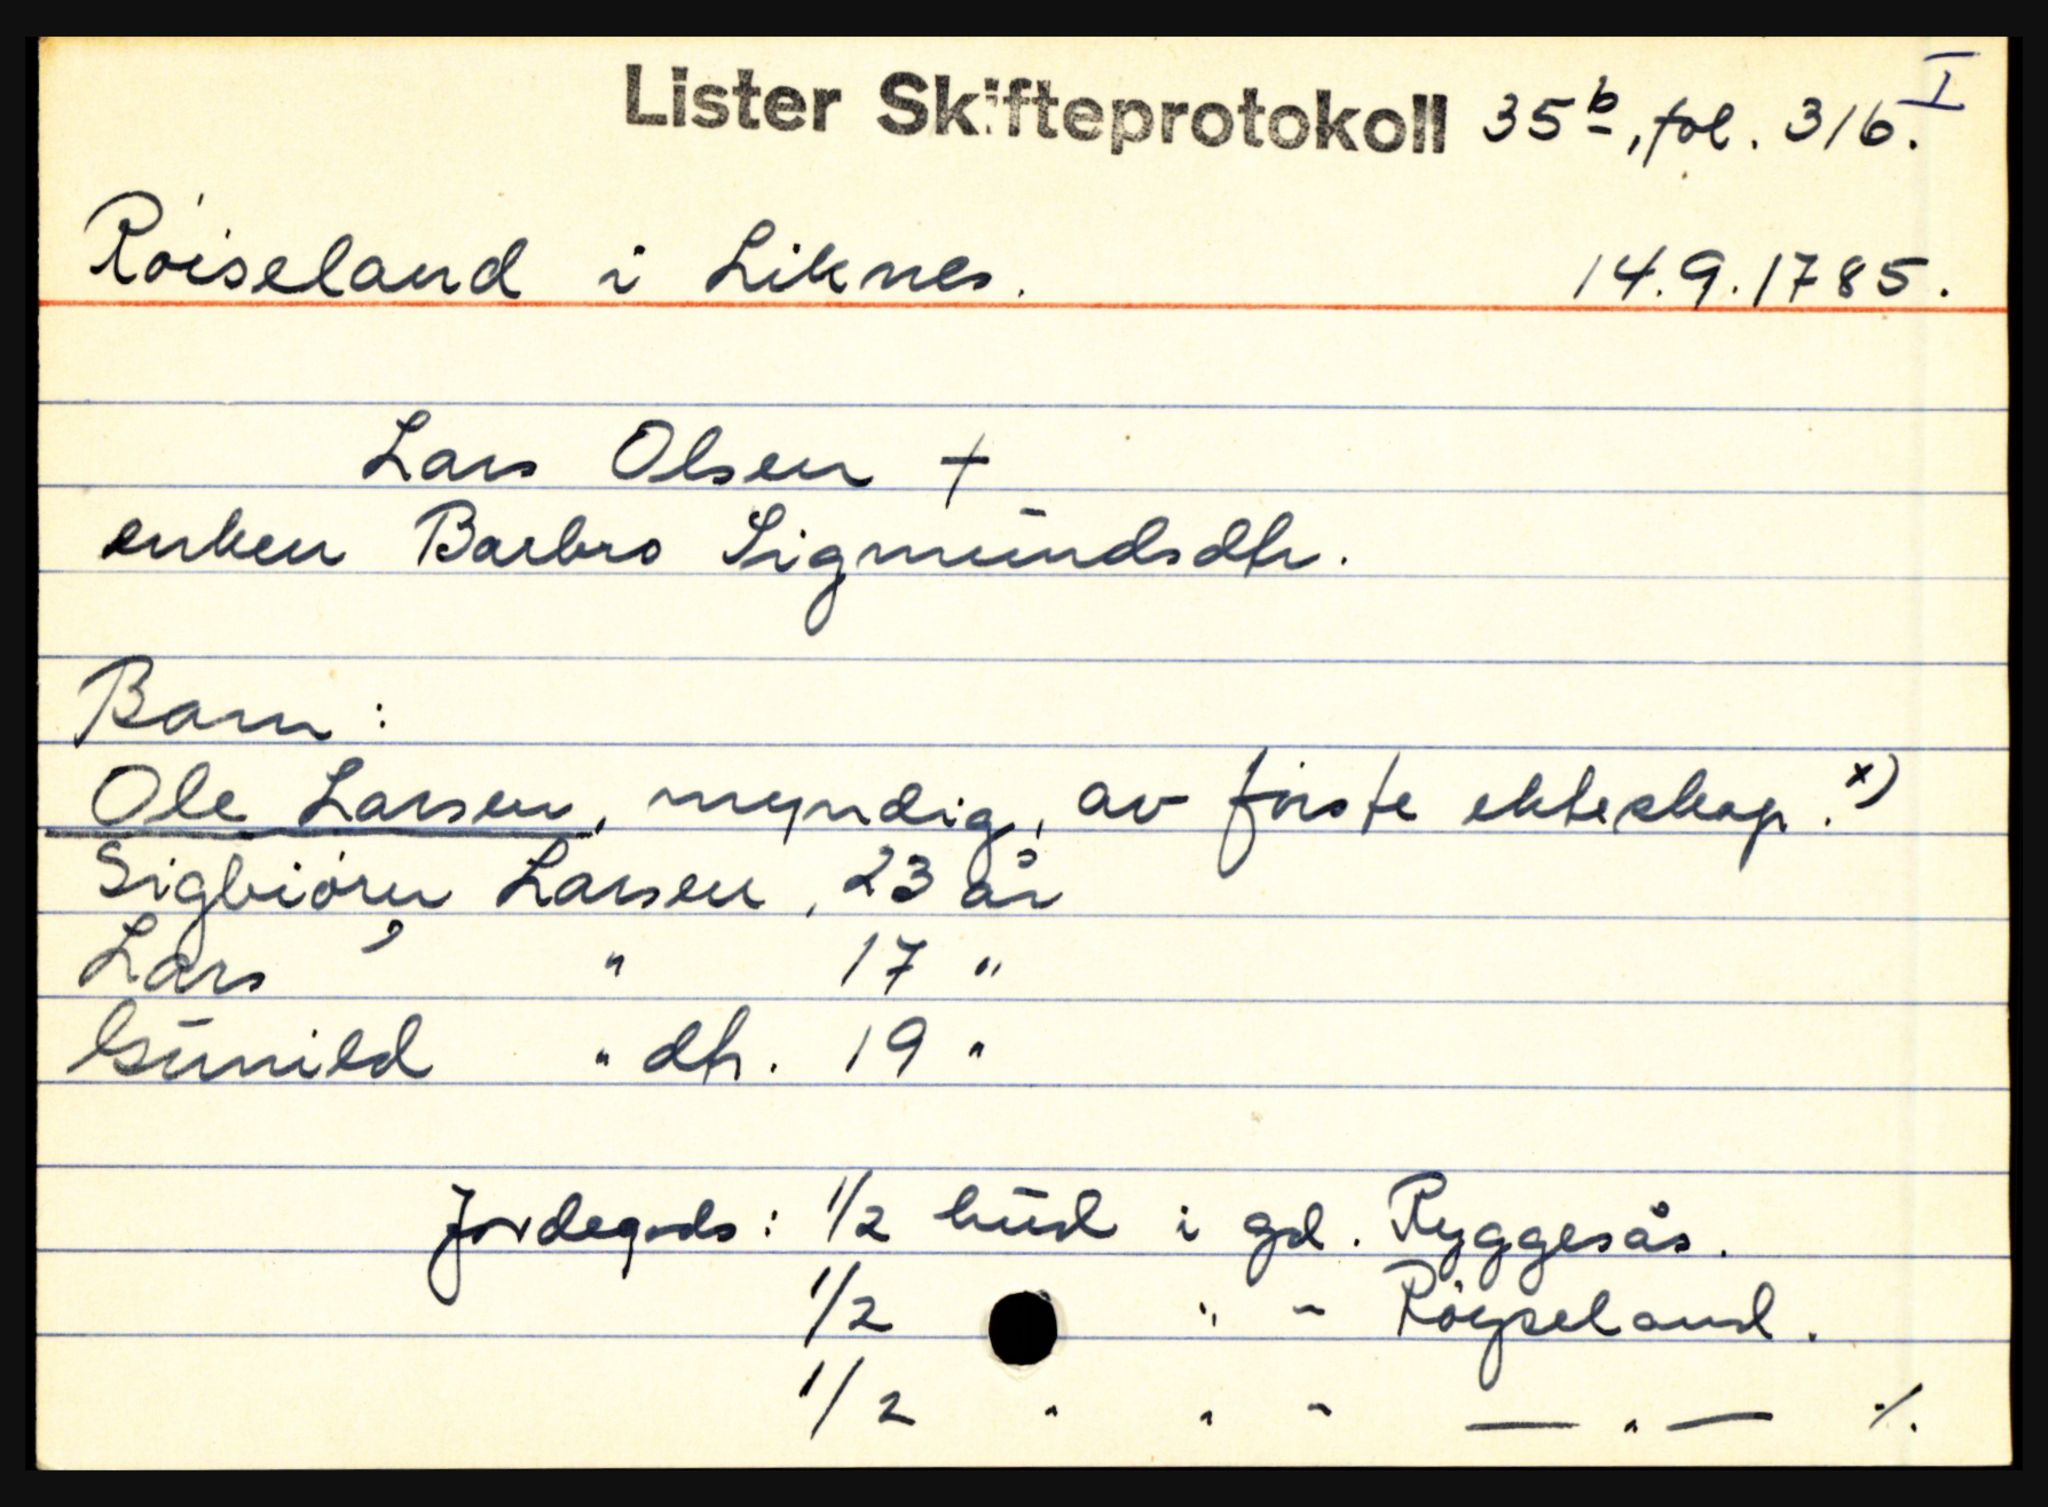 I
Lister Skifteprotokoll 35b, fol. 316.
Röiseland i Liknes. 14.9.1785.
Lars Olsen +
enken Barbro Sigmundsdtr.
Barn:
Ole Larsen, myndig, av förste ekteskap. x)
Sigbiörn Larsen, 23 år
Lars " 17 "
Gunild " dtr. 19 "
Jordegods: 1/2 hud i gd. Ryggesås.
1/2 " " Röyseland.
1/2 " " " — " — ./.